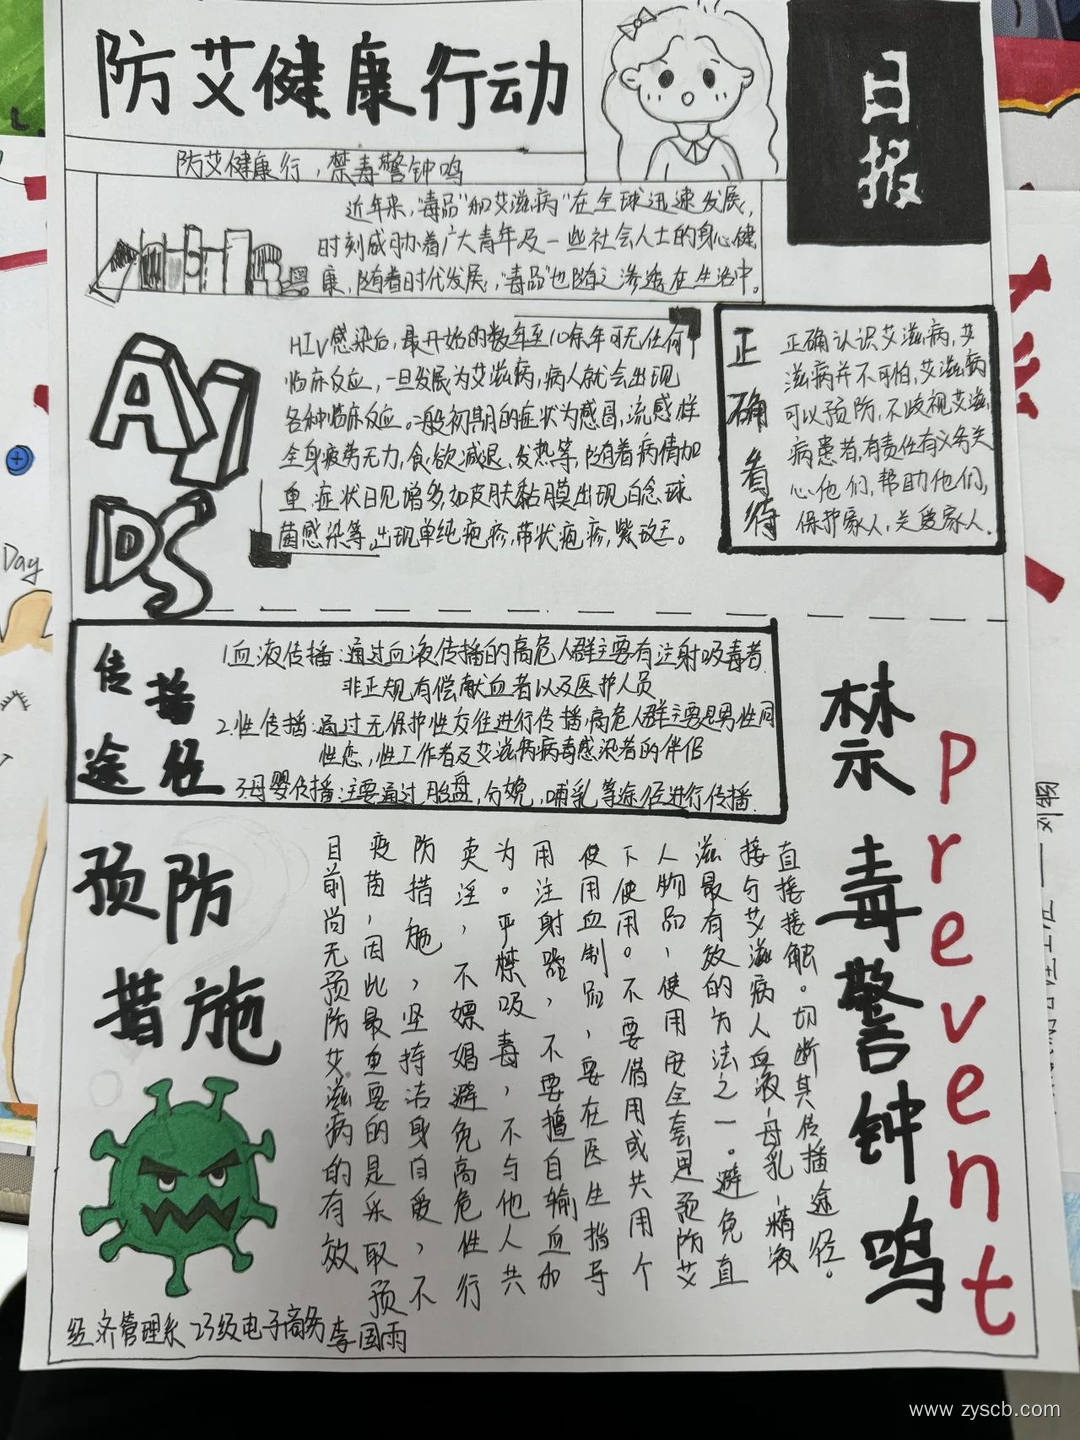 防艾健康行动
日报
防艾健康行，禁毒警钟鸣
近年来，"毒品"和"艾滋病"在全球迅速发展，
时刻威胁着广大青年及一些社会人士的身心健
康，随着时代发展，"毒品"也随之渗透在生活中。
AI
DS
HIV感染后，最开始的数年至10余年可无任何
临床反应，一旦发展为艾滋病，病人就会出现
各种临床反应。一般初期的症状为感冒，流感样
全身疲劳无力，食欲减退、发热等，随着病情加
重，症状日见增多，如皮肤黏膜出现白念球
菌感染等，出现单纯疱疹，带状疱疹，紫斑。
正确看待
正确认识艾滋病，艾
滋病并不可怕，艾滋病
可以预防，不歧视艾滋
病患者，有责任有义务关
心他们，帮助他们，
保护家人，关爱家人.
传播
途径
1.血液传播：通过血液传播的高危人群主要有注射吸毒者.
非正规有偿献血者以及医护人员
2.性传播：通过无保护性交往进行传播，高危人群主要是男性同
性恋，性工作者及艾滋病病毒感染者的伴侣
3.母婴传播：主要通过胎盘，分娩，哺乳等途径进行传播.
禁毒警钟鸣
prevent
预防
措施
目前尚无预防艾滋病的有效
疫苗，因此最重要的是采取预
防措施，坚持洁身自爱，不
卖淫，不嫖娼避免高危性行
为。严禁吸毒，不与他人共
用注射器，不要擅自输血加
使用血制品，要在医生指导
下使用。不要借用或共用个
人物品，使用安全套是预防艾
滋最有效的方法之一。避免直
接与艾滋病人血液，母乳，精液
直接接触。切断其传播途径。
经济管理系 23级电子商务 李国雨
Day
www.zyscb.com